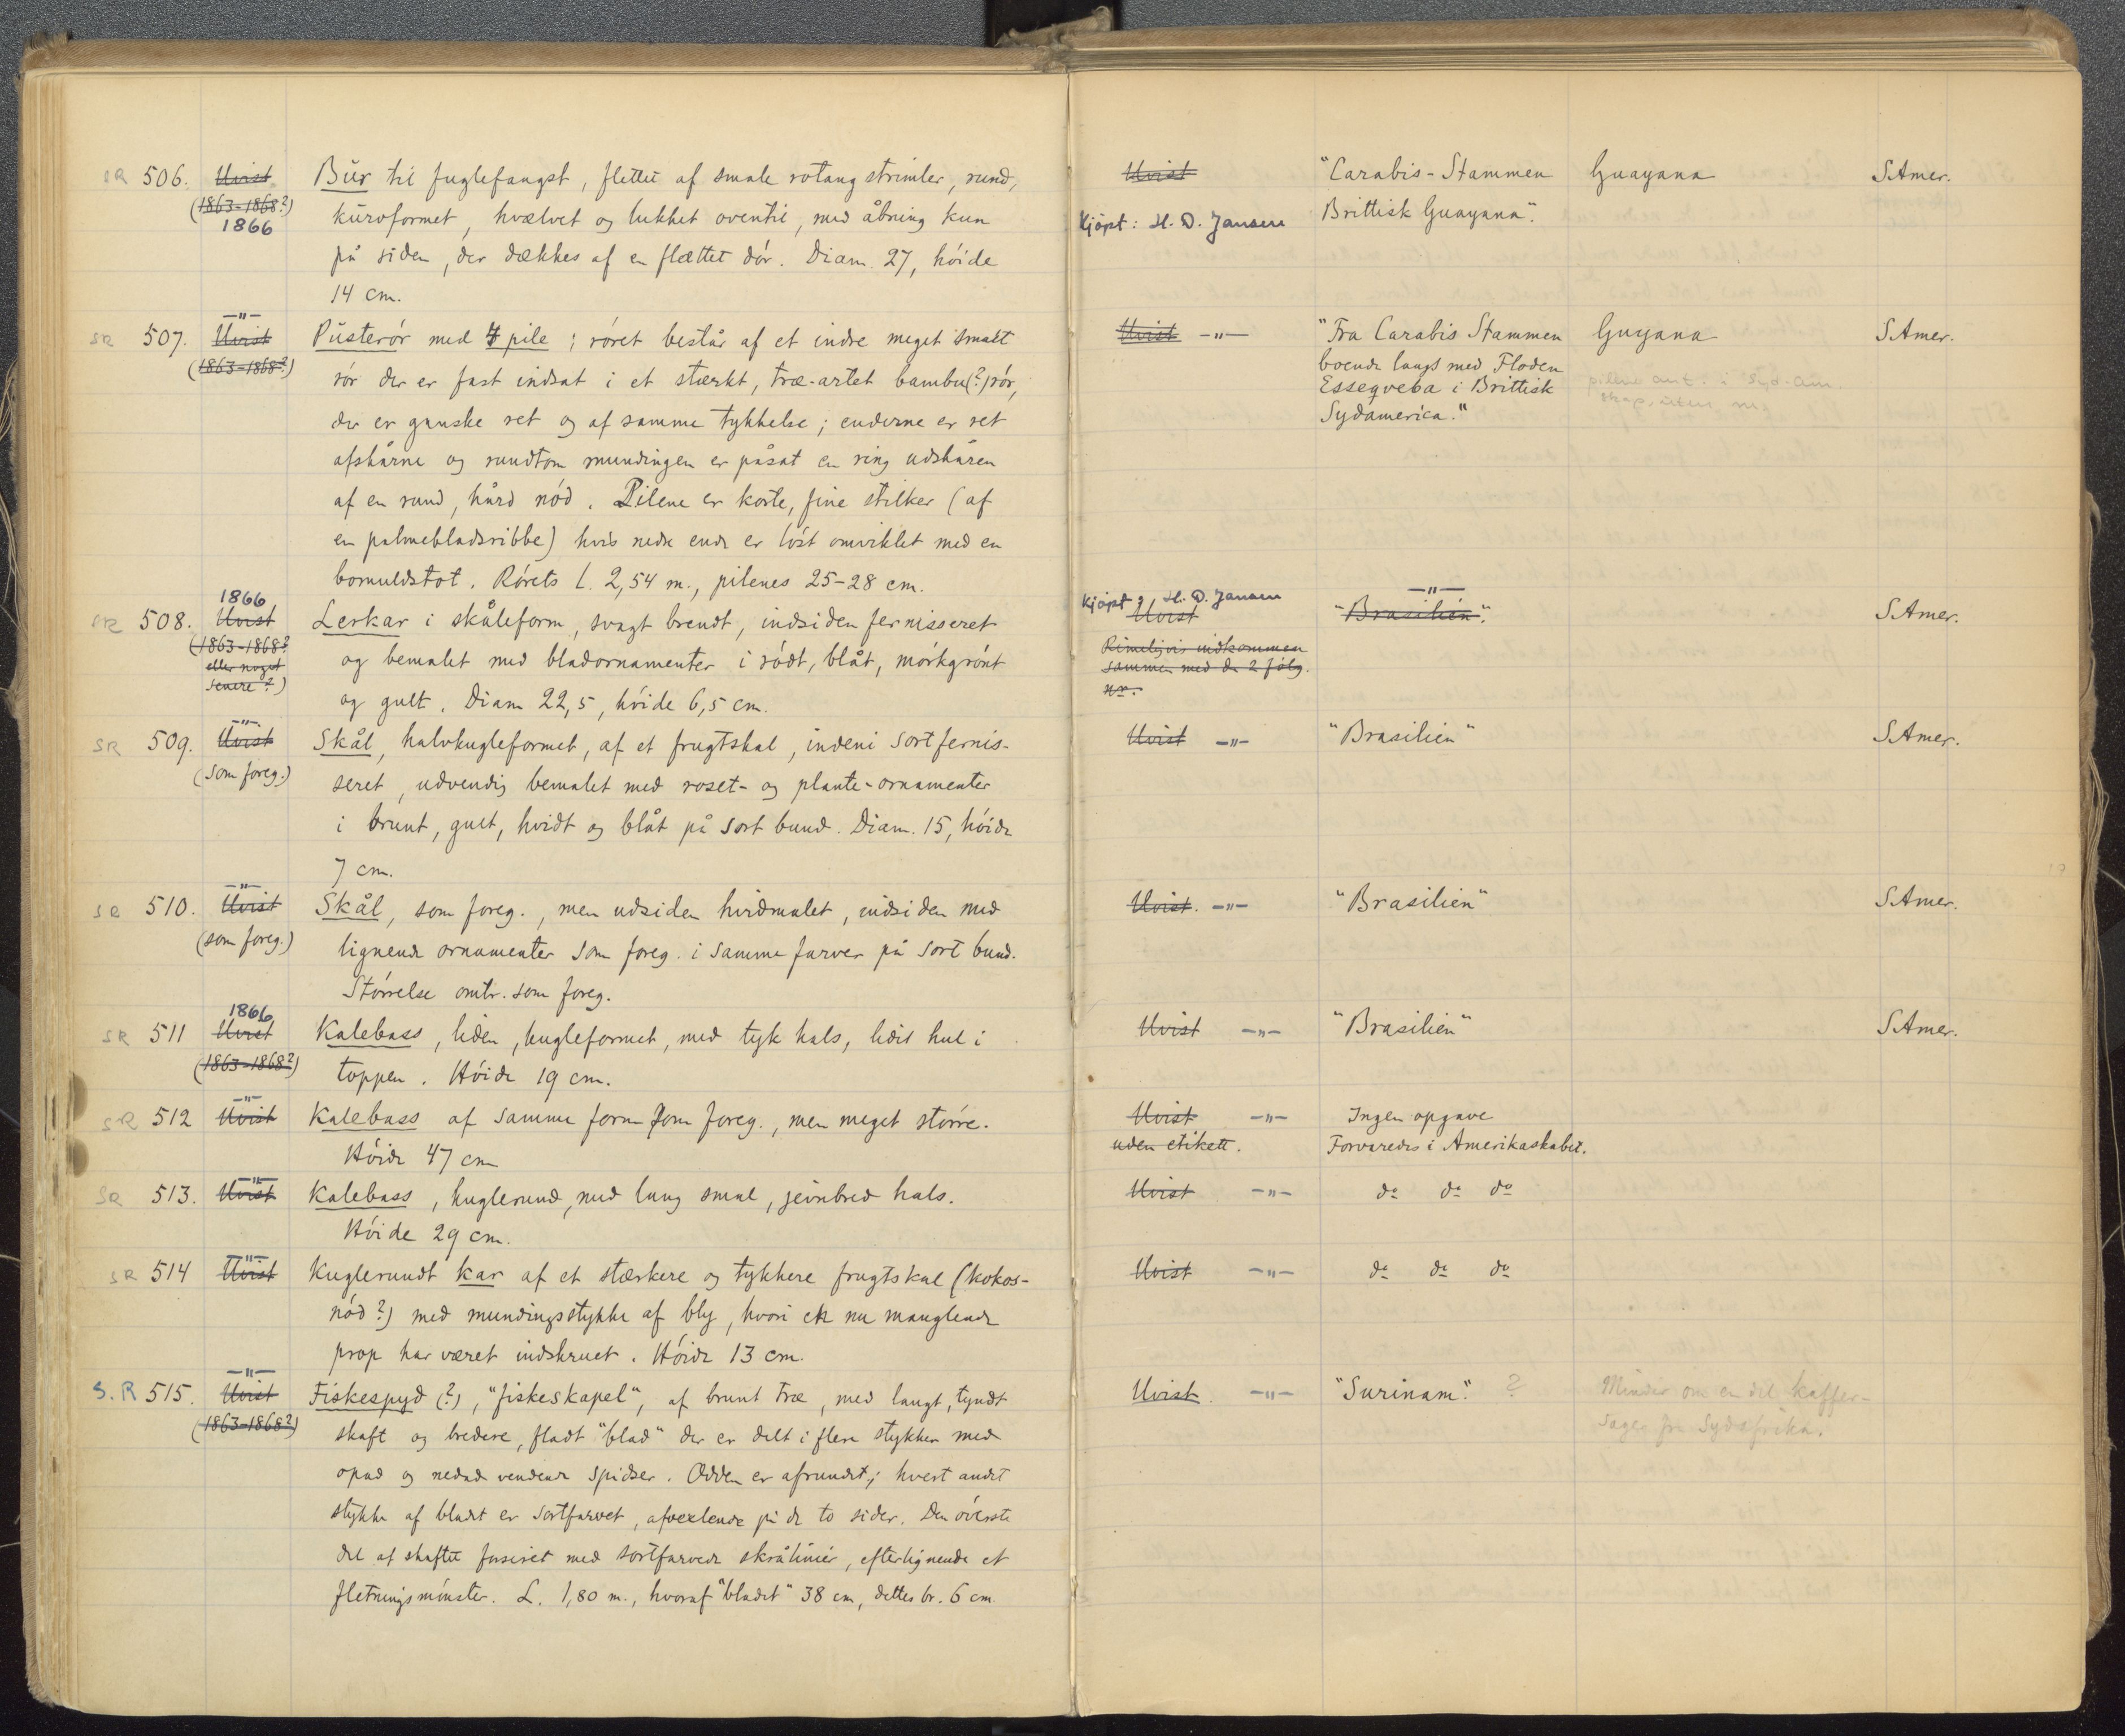 SR 506. Uvist Bur til fuglefangst, flettet af smale rotang strimler, rund,
(1863-1868?) kurvformet, hvælvet og lukket oventil, med åbning kun
1866
på siden, der dækkes af en flættet dør. Diam. 27, høide
14 cm.
Uvist "Carabis-Stammen Guayana S Amer.
Kjøpt: H. D. Jansen Brittisk Guayana".
-"-
SR 507. Uvist Pusterør med 4 pile; røret består af et indre meget smalt
(1863-1868?) rør der er fast indsat i et stærkt, træ-artet bambu(?)rør,
der er ganske ret og af samme tykkelse; enderne er ret
afskårne og rundtom mundingen er påsat en ring udskåren
af en rund, hård nød. Pilene er korte, fine stilker (af
en palmebladsribbe) hvis nedre ende er løst omviklet med en
bomuldstot. Rørets l. 2,54 m., pilenes 25-28 cm.
Uvist -"- "Fra Carabis Stammen Guyana S Amer.
boende langs med Floden
Esseqveba i Brittisk
Sydamerica."
1866
SR 508. Uvist Lerkar i skåleform, svagt brendt, indsiden fernisseret
(1863-1868? og bemalet med bladornamenter i rødt, blåt, mørkgrønt
eller noget
senere?) og gult. Diam 22,5, høide 6,5 cm.
Kjøpt: H. D. Jansen -"-
Uvist "Brasilien". S Amer.
Rimeligvis indkommen
sammen med de 2 følg.
nr.
-"-
SR 509. Uvist Skål, halvkugleformet, af et frugtskal, indeni sortfernis-
(som foreg.) seret, udvendig bemalet med roset- og plante-ornamenter
i brunt, gult, hvidt og blåt på sort bund. Diam. 15, høide
7 cm.
Uvist -"- "Brasilien" S Amer.
-"-
SR 510. Uvist Skål, som foreg., men udsiden hvidmalet, indsiden med
(som foreg.) lignende ornamenter som foreg. i samme farver på sort bund.
Størrelse omtr. som foreg.
Uvist. -"- "Brasilien" S Amer.
1866
SR 511 Uvist Kalebass, liden, kugleformet, med tyk hals, lidet hul i
(1863-1868?) toppen. Høide 19 cm.
Uvist -"- "Brasilien" S Amer.
-"-
SR 512 Uvist Kalebass af samme form som foreg., men meget større.
Høide 47 cm
Uvist -"- Ingen opgave
uden etikett. Forvaredes i Amerikaskabet.
-"-
SR 513. Uvist Kalebass, kuglerund, med lang smal, jevnbred hals.
Høide 29 cm.
Uvist -"- do do do
-"-
SR 514 Uvist Kuglerundt kar af et stærkere og tykkere frugtskal (kokos-
nød?) med mundingsstykke af bly, hvori en nu manglende
prop har været indskruet. Høide 13 cm.
Uvist -"- do do do
-"-
S.R 515. Uvist Fiskespyd (?), "fiskeskapel", af brunt træ, med langt, tyndt
(1863-1868?) skaft og bredere, fladt "blad" der er delt i flere stykker med
opad og nedad vendende spidser. Odden er afrundet; hvert andet
stykke af bladet er sortfarvet, afvexlende på de to sider. Den øverste
del af skaftet forsiret med sortfarvede skrålinier, efterlignende et
fletningsmønster. L. 1,80 m., hvoraf "bladet" 38 cm, dettes br. 6 cm.
Uvist. -"- "Surinam". ? Minder om en del kaffer-
sager fra Sydafrika.